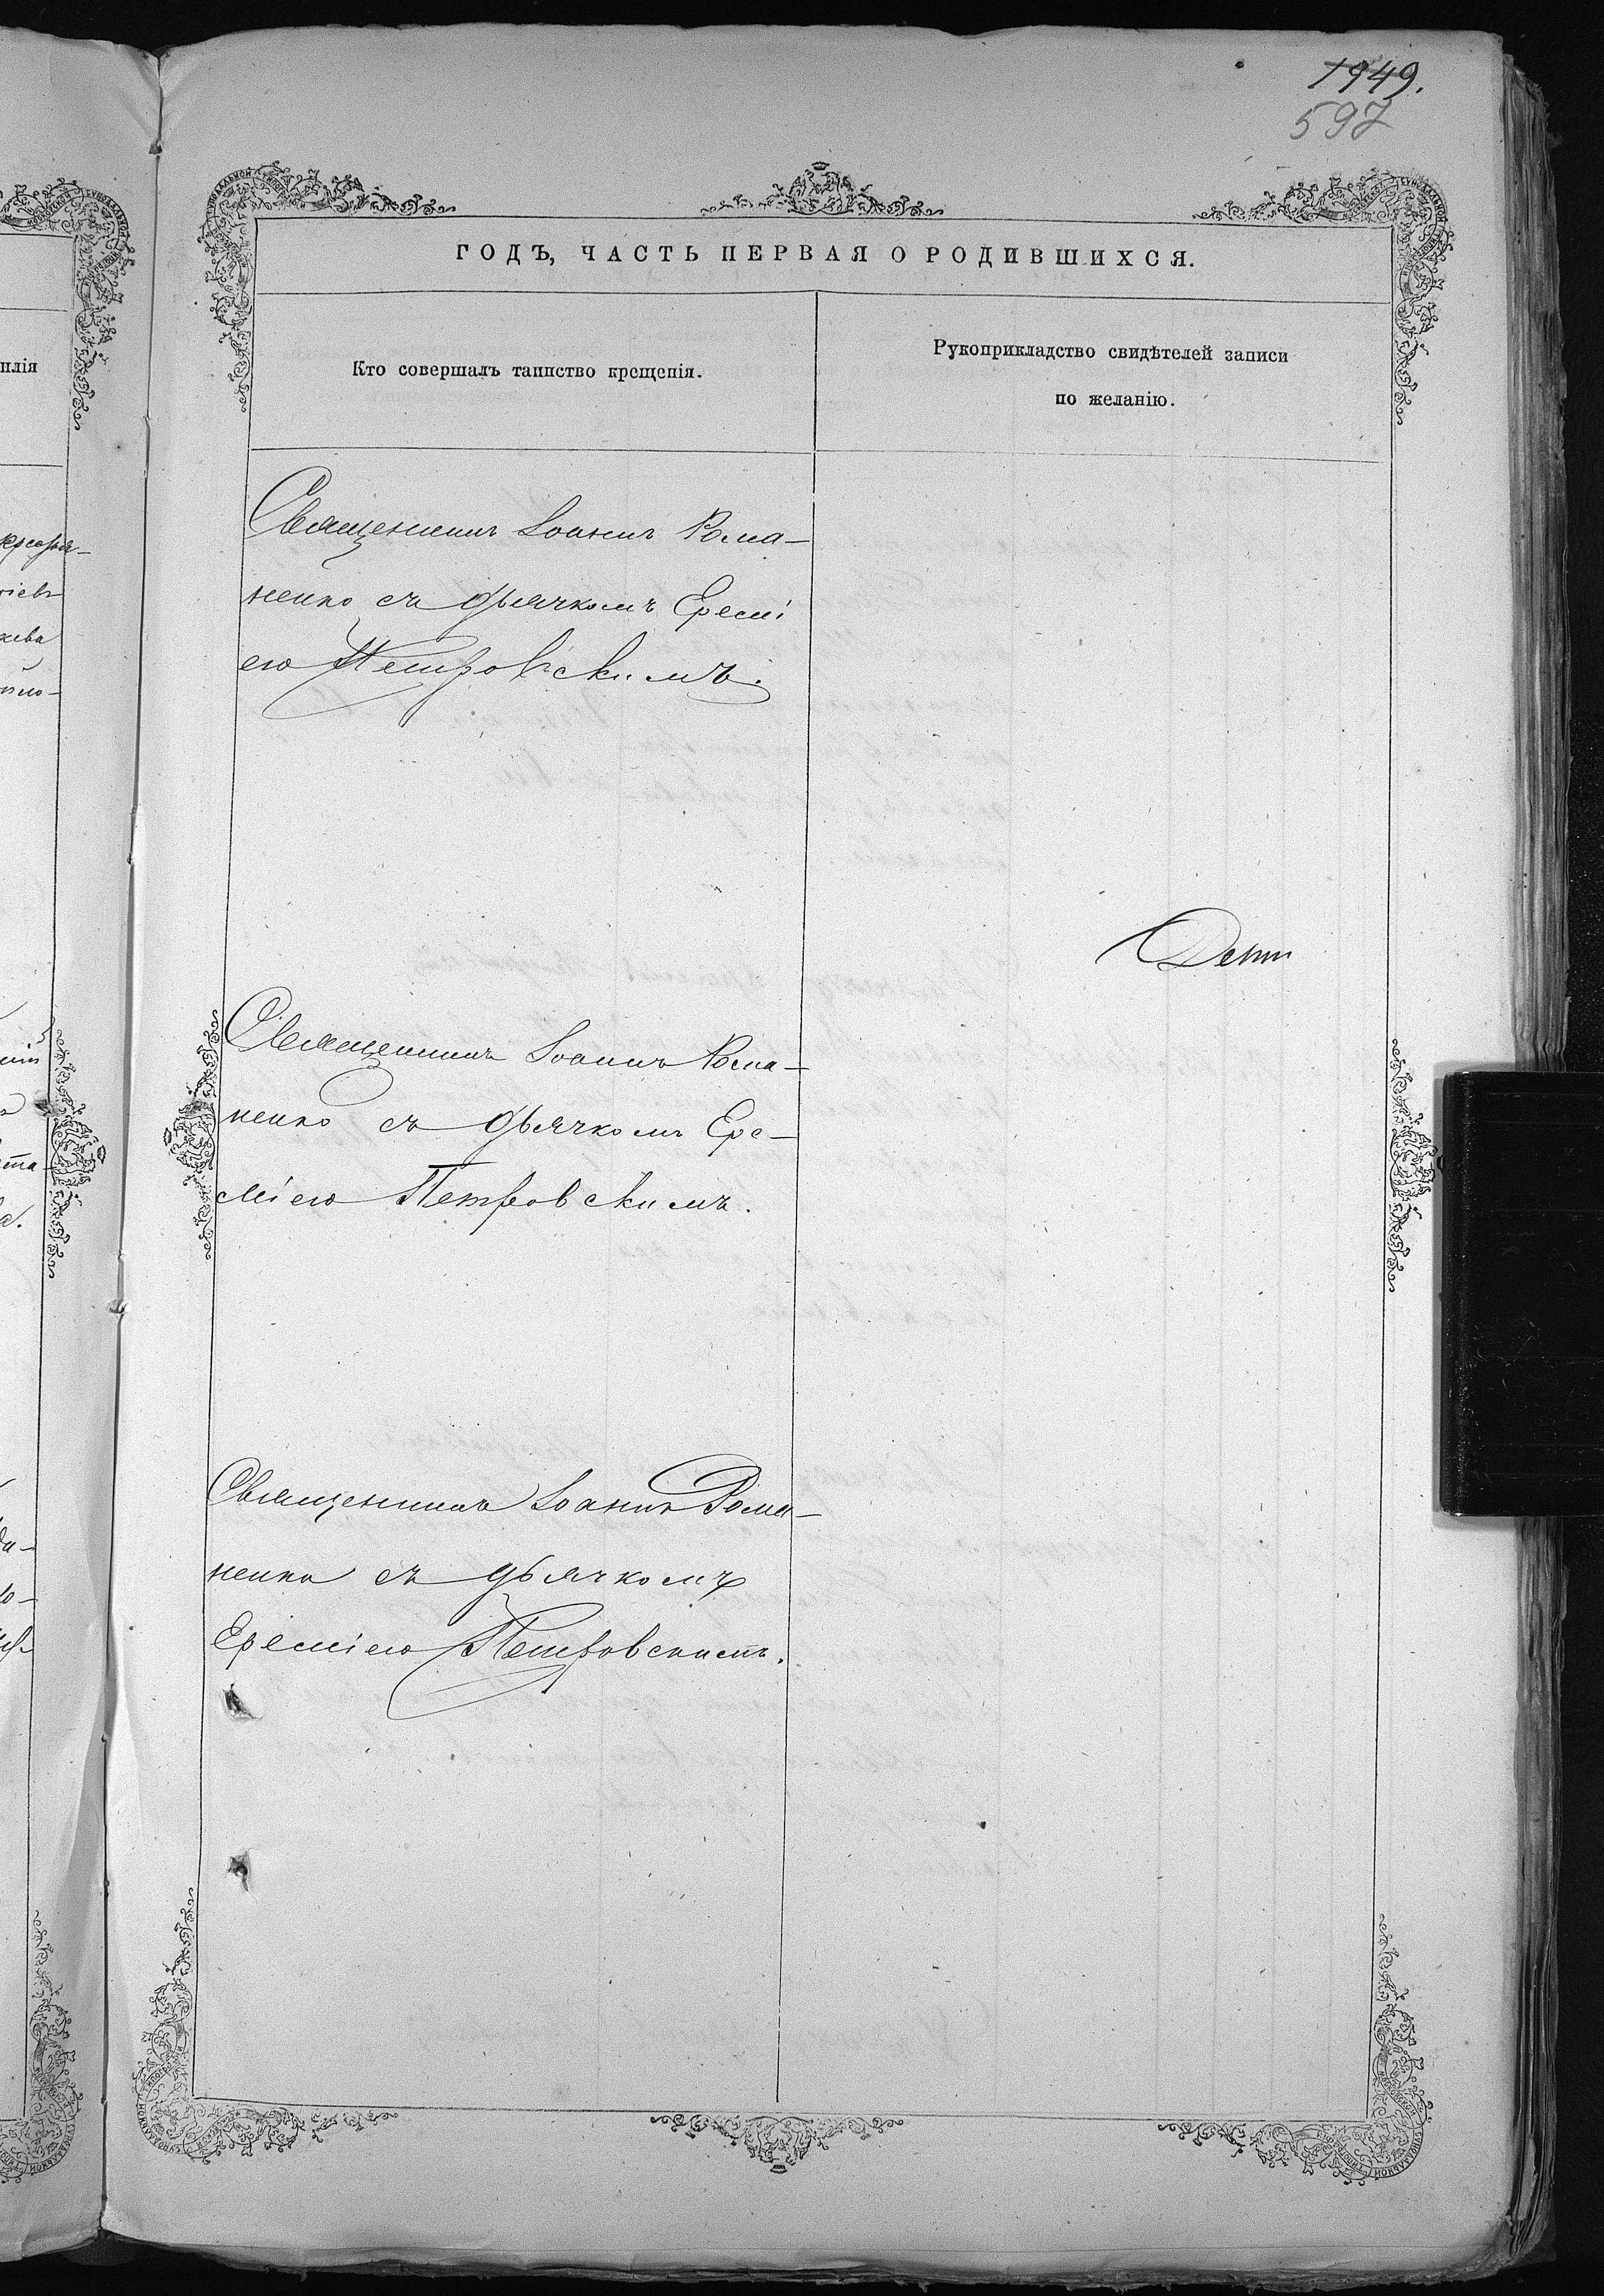 1949.
597
ГОДЪ, ЧАСТЬ ПЕРВАЯ О РОДИВШИХСЯ.
Кто совершалъ таинство крещенія.
Рукоприкладство свидѣтелей записи
по желанію.
Священникъ Іоаннъ Рома-
ненко съ дьячкомъ Еремі
ею Петровскимъ.
Священникъ Іоаннъ Рома-
ненко съ дьячкомъ Ере-
міею Петровскимъ.
Священникъ Іоаннъ Рома-
ненко съ дьячкомъ
Ереміею Петровскимъ.